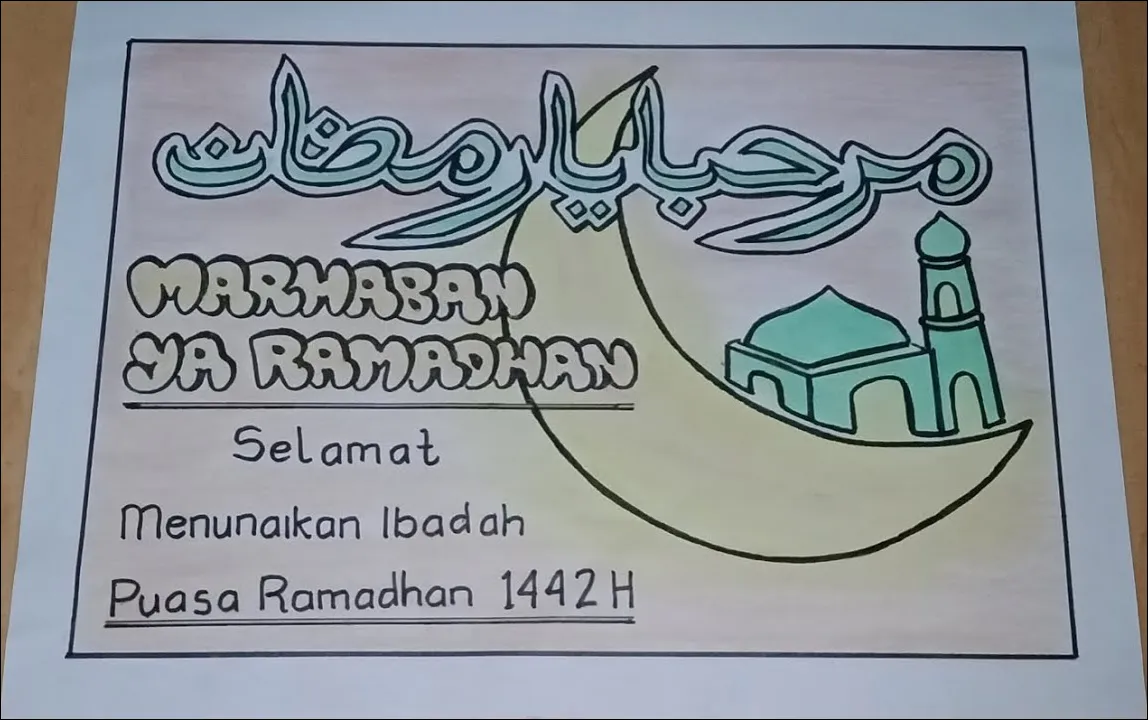 مرحبا يا رمضان
MARHABAN
YA RAMADHAN
Selamat
Menunaikan Ibadah
Puasa Ramadhan 1442 H